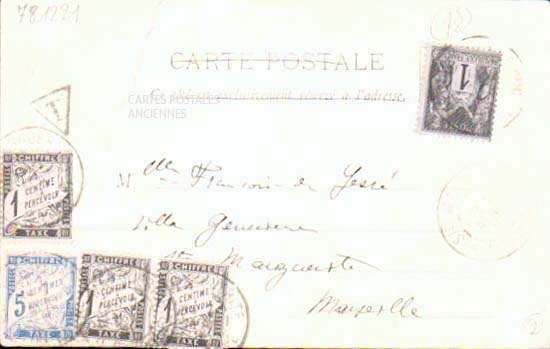 781221
CARTE POSTALE
Ce côté exclusivement réservé à l'adresse.
CARTES POSTALES
ANCIENNES
T
1
POSTES
Mlle François de Jessé
Villa Geneviève
Ste Marguerite
Marseille
POSTES
CHIFFRE
1
CENTIME
À
PERCEVOIR
TAXE
CHIFFRE
5
CENTIMES
À
PERCEVOIR
TAXE
CHIFFRE
1
CENTIME
À
PERCEVOIR
TAXE
CHIFFRE
1
CENTIME
À
PERCEVOIR
TAXE